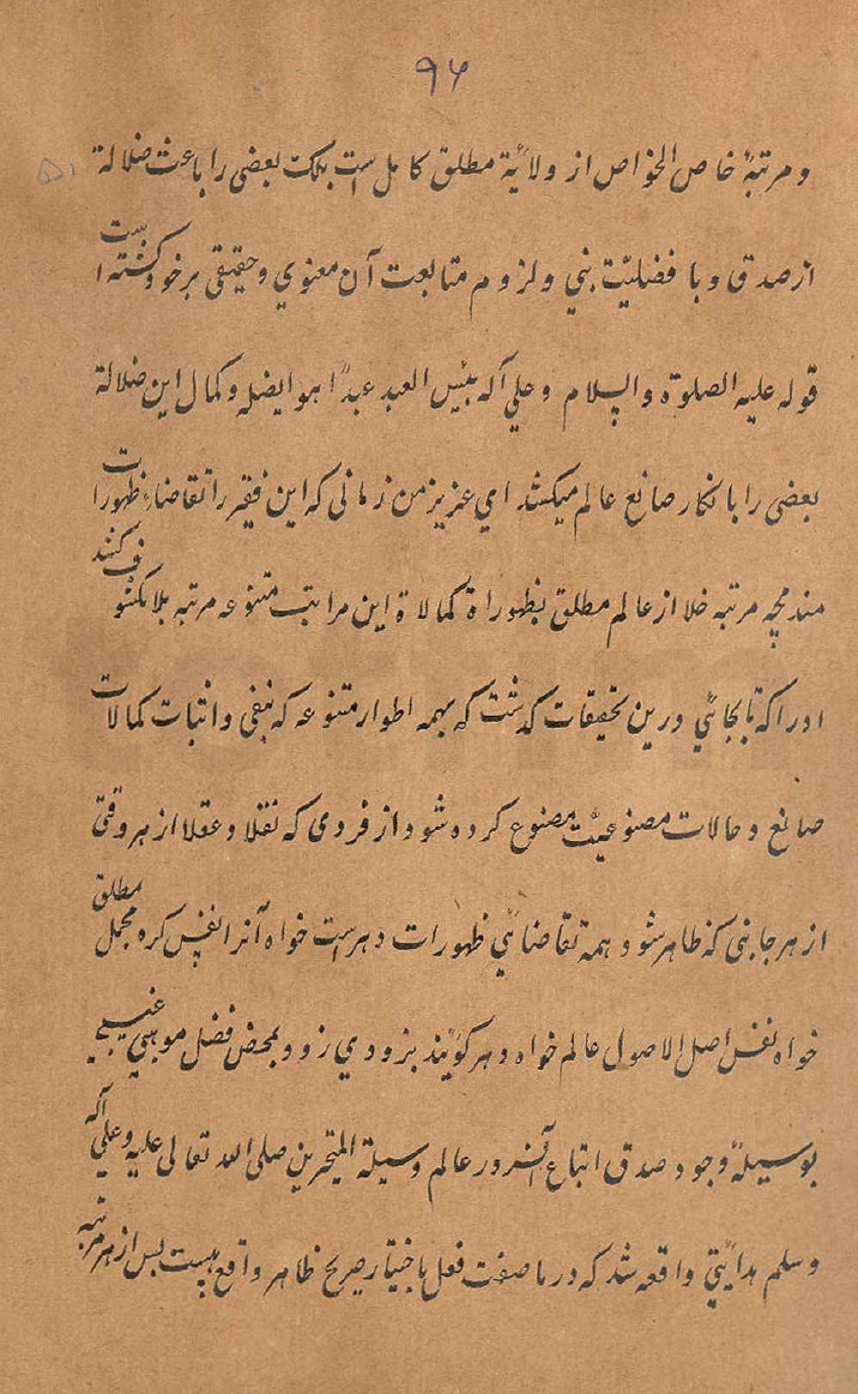 ۹۶
و مرتبهٔ خاص الخواص از ولایة مطلق کامل است بلکه بعضی را باعث ضلالة
از صدق و با فضلیّت بنی و لزوم متابعت آن معنوي و حقیقی برخود گشته است
قوله علیه الصلوة والسلام وعلي آله بیئس العبد عبدًا هوا یضله وکمال این ضلالة
بعضی را بانکار صانع عالم میکشد اي عزیز من زمانی که این فقیر را تقاضاء ظهورات
مندمجه مرتبه خلا از عالم مطلق بظهوراة کمالاة این مراتب متنوعه مرتبه بلا مکشوف کنند
ادراک تا بجائي درین تحقیقات گذشت که بهمه اطوار متنوعه که بنفی و اثبات کمالات
صانع و حالات مصنوعیّت مصنوع کرده شود از فردی که نقلا و عقلا از هر وقتی
از هر جانبی که ظاهر شود همه تقاضائي ظهورات دهر است خواه آنرا نفس کره مجمل مطلق
خواه نفس اصل الاصول عالم خواه دهر گویند بزودي زود بمحض فضل موهبي غیبي
بوسیلهٔ وجود صدق اتباع آنسرور عالم وسیلة المتحرین صلی الله تعالی علیه وعلي آله
وسلم هدایتي واقعه شد که در ما صفت فعل باختیار صریح ظاهر واقع است پس از هر مرتبه